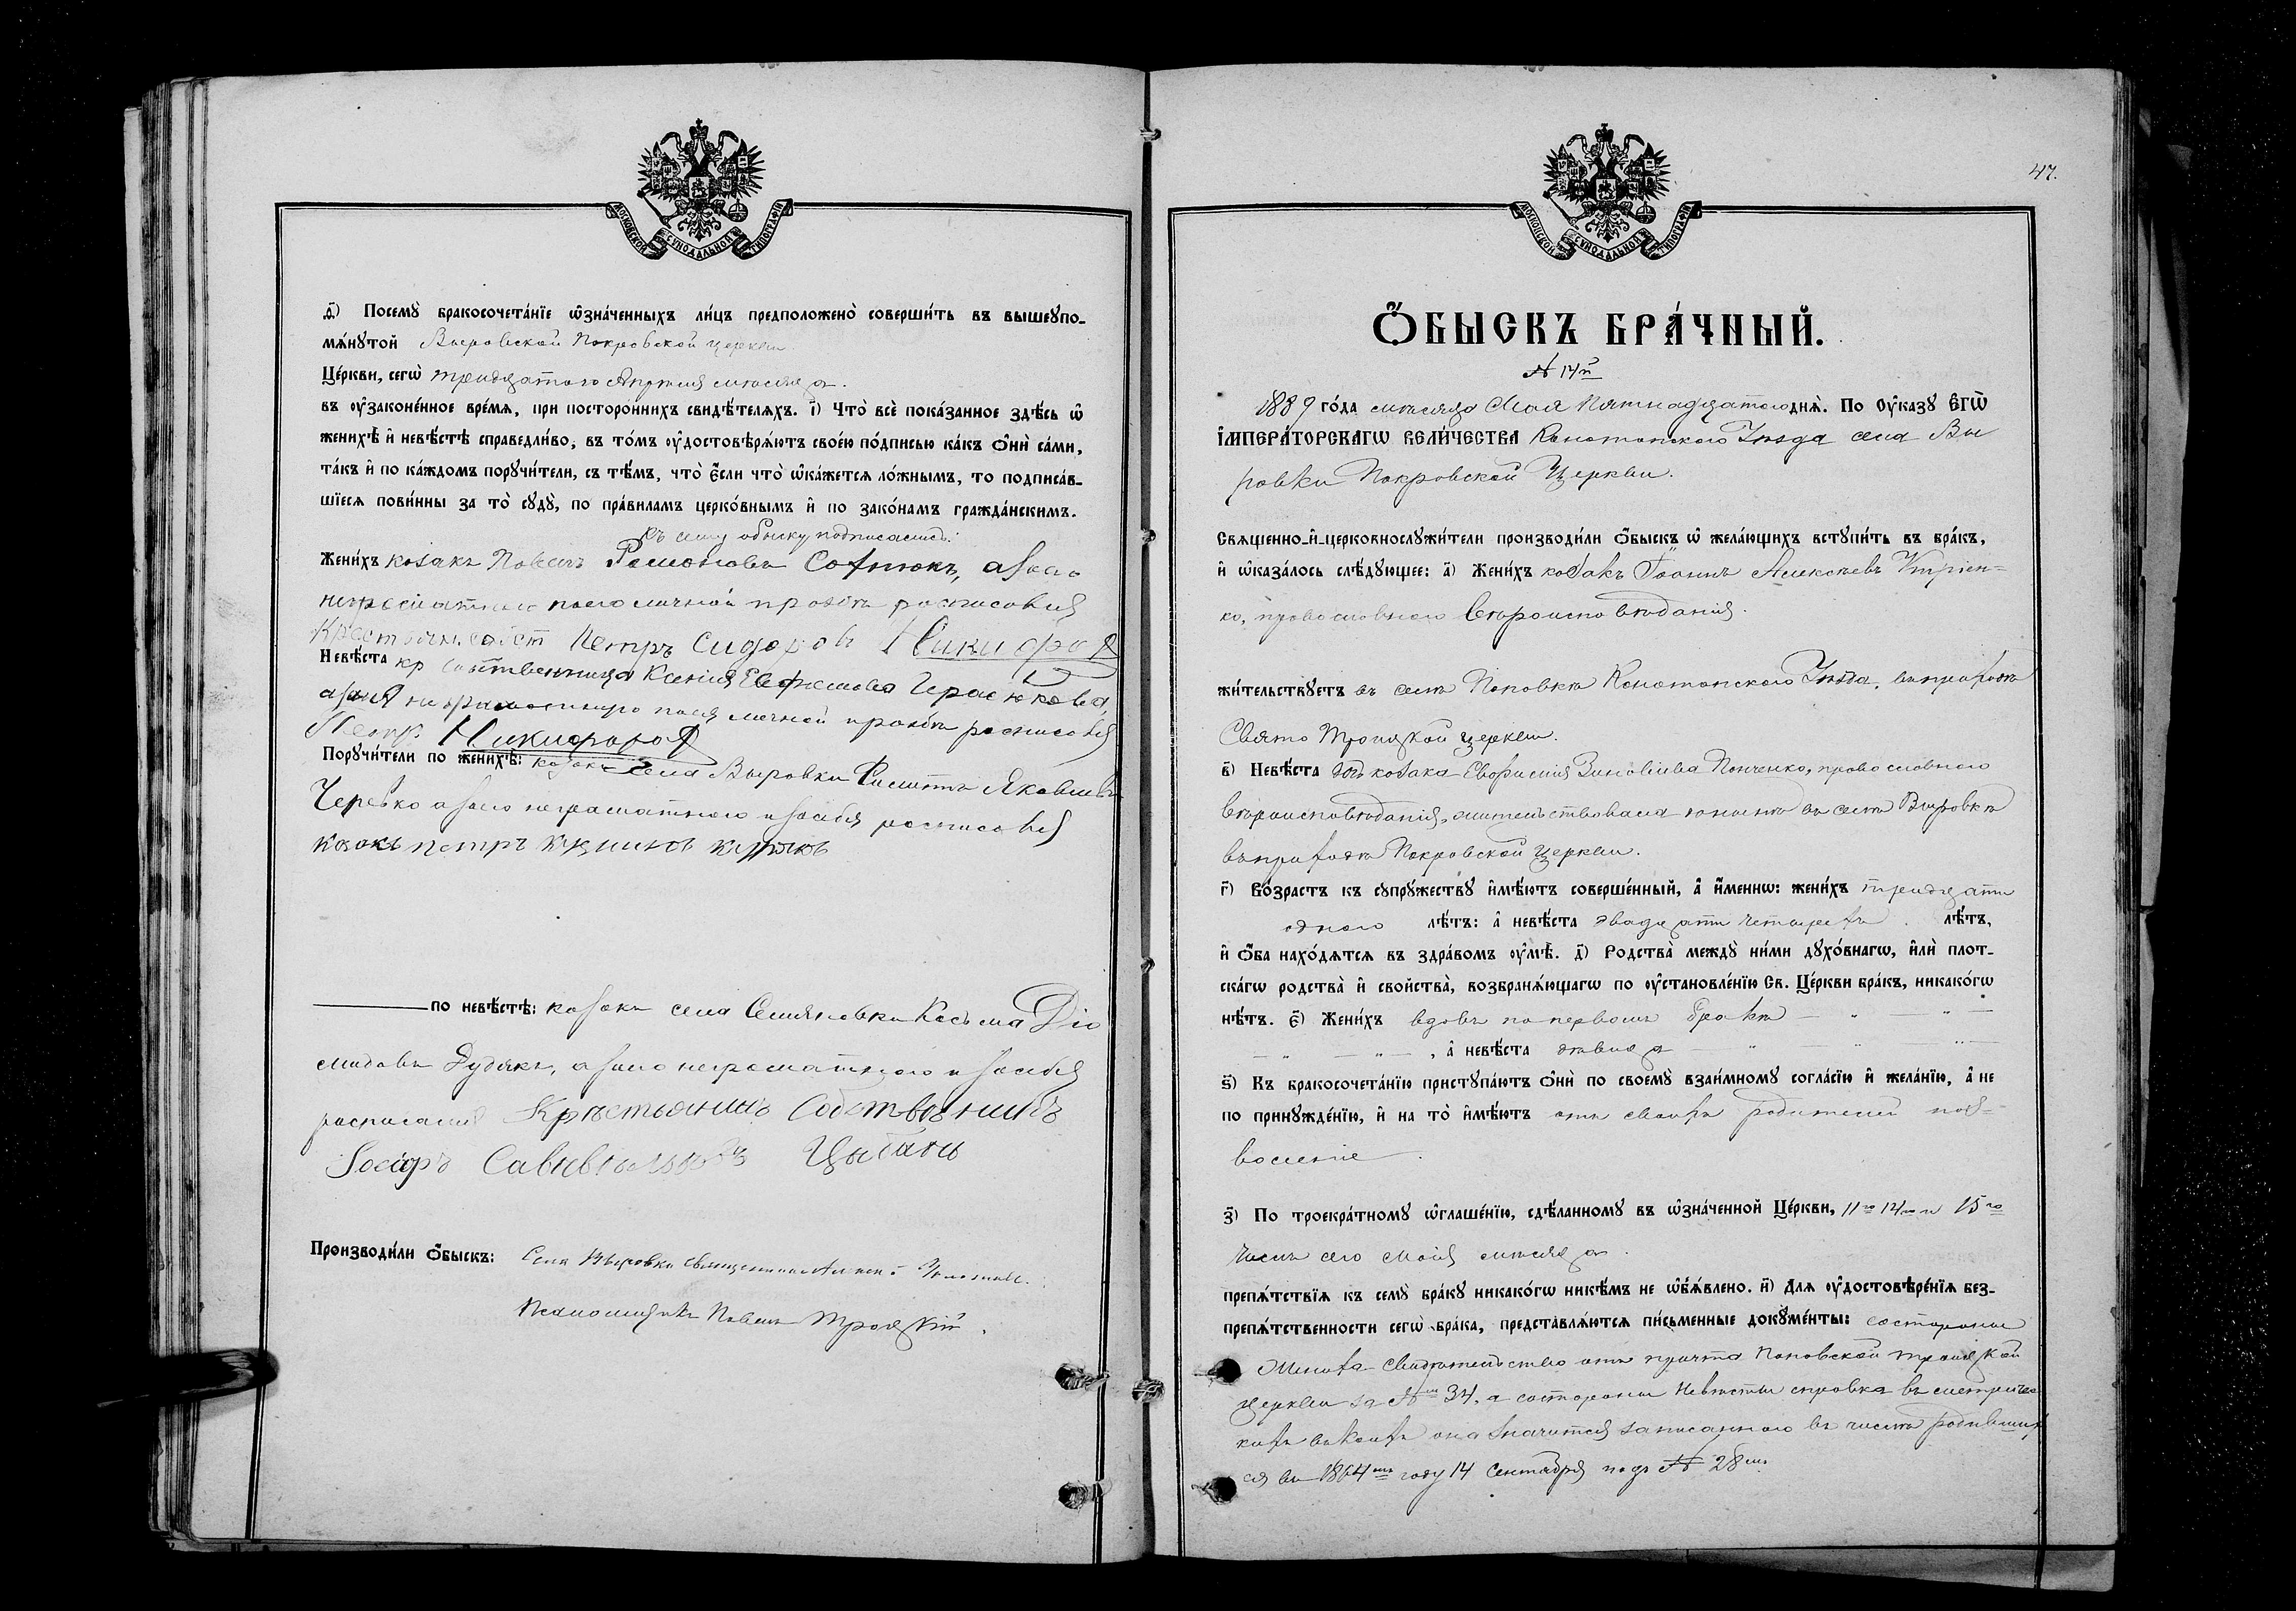 МОСКОВСКОЙ СѴНОДАЛЬНОЙ ТИПОГРАФІИ
д҃) Посемꙋ̀ бракосочета́нїе ѡ҆зна́ченныхъ ли́цъ предположено̀ соверши́ть въ вышеꙋпо-
мѧ́нꙋтой Выровской Покровской церкви
Це́ркви, сегѡ̀ тридцатого Апрѣля мѣсяца.
въ ᲂу҆законе́нное вре́мѧ, при посторо́ннихъ свидѣ́телѧхъ. і҃) Что̀ всѐ пока́занное здѣ́сь ѡ҆
женихѣ̀ и҆ невѣ́стѣ справедли́во, въ то́мъ ᲂу҆достовѣрѧ́ютъ свое́ю по́дписью ка́къ ѻ҆нѝ са́ми,
та́къ и҆ по ка́ждомъ порꙋчи́тели, съ тѣ́мъ, что̀ є҆́сли что̀ ѡ҆ка́жетсѧ ло́жнымъ, то подписа́в-
шїесѧ пови́нны за то̀ сꙋдꙋ̀, по пра́виламъ церко́внымъ и҆ по зако́намъ гражда́нскимъ.
Къ сему обыску подписались:
Жени́хъ козакъ Павелъ Романовъ Сотнюкъ, а за его
неграмотного по его личной прозбѣ росписовся
Петръ Сидоровъ Никифоров
Невѣ́ста кр собственница Ксенія Евфимова Герасюкова,
а за нея неграмотную по ея личной прозбѣ росписовся
Петр Никифоров
Порꙋчи́тели по женихѣ̀: козакъ села Выровки Филиппъ Яковлевъ
Черевко а за его неграмотного и за себя росписовся
козакъ петръ
по невѣ́стѣ: козакъ села Семяновки Косьма Діо
мидовъ Дудякъ, а за его неграмотного и за себя
росписался Крѣстьянинъ Собствѣникъ
Цыганъ
Произво́дили ѻ҆́быскъ: Села Выровки священникъ
Псаломщикъ Павелъ Троицкій.
47.
МОСКОВСКОЙ СѴНОДАЛЬНОЙ ТИПОГРАФІИ
Ѻ҆́БЫСКЪ БРА́ЧНЫЙ.
№ 14й
1889 го́да мѣсяца Мая Пятнадцатого днѧ̀. По ᲂу҆ка́зꙋ Є҆ГѠ̀
І҆МПЕРА́ТОРСКАГѠ ВЕЛИ́ЧЕСТВА Конотопского Уѣзда села Вы
ровки Покровской Церкви.
Свѧщенно-и҆-церковнослꙋжи́тели производи́ли ѻ҆́быскъ ѡ҆ жела́ющихъ встꙋпи́ть въ бра́къ,
и҆ ѡ҆каза́лось слѣ́дꙋющее: а҃) Жени́хъ козакъ Іоаннъ Алексѣевъ Кирієн=
ко, православного вѣроисповѣданія.
жи́тельствꙋетъ въ селѣ Поповкѣ Конотопского Уѣзда, въ приходѣ
Свято Троицкой церкви.
в҃) Невѣ́ста дочь козака Евфимія Зиновіева Попченко, православного
вѣроисповѣданія, жительствовала донынѣ въ селѣ Выровкѣ
въ приходѣ Покровской церкви.
г҃) Во́зрастъ къ сꙋпрꙋ́жествꙋ и҆мѣ́ютъ соверше́нный, а҆ и҆́меннѡ: жени́хъ тридцати
одного лѣ́тъ: а҆ невѣ́ста двадцати четырехъ. лѣ́тъ,
и҆ ѻ҆́ба нахо́дѧтсѧ въ здра́вомъ ᲂу҆мѣ̀. д҃) Родства̀ междꙋ̀ ни́ми дꙋхо́внагѡ, и҆лѝ плот-
ска́гѡ родства̀ и҆ сво́йства, возбранѧ́ющагѡ по ᲂу҆становле́нїю Св. Це́ркви бра́къ, никако́гѡ
нѣ́тъ. є҃) Жени́хъ вдовъ по первомъ бракѣ — " — " —
— " — " —, а҆ невѣ́ста дѣвица — " — " — " —
ѕ҃) Къ бракосочета́нїю пристꙋпа́ютъ ѻ҆нѝ по своемꙋ̀ взаи́мномꙋ согла́сїю и҆ жела́нїю, а҆ не
по принꙋжде́нїю, и҆ на то̀ и҆мѣ́ютъ отъ своихъ родителей поз=
воленіе.
з҃) По троекра́тномꙋ ѡ҆глаше́нїю, сдѣ́ланномꙋ въ ѡ҆зна́ченной Це́ркви, 11го 14го и 15го
числъ сего мая мѣсяца.
препѧ́тствїѧ къ семꙋ̀ бра́кꙋ никако́гѡ никѣ́мъ не ѡ҆б̾ѧ́влено. и҃) Для ᲂу҆достовѣре́нїѧ без-
препѧ́тственности сегѡ̀ бра́ка, представлѧ́ютсѧ пи́сьменные докꙋме́нты: со стороны
Жениха свидѣтельство отъ причта Поповской троицкой
церкви за №м 34, а со стороны Невѣсты справка въ метричес
кихъ книгахъ она значится записанною въ числѣ родивших
ся въ 1864мъ году 14 Сентября подъ № 28мъ.